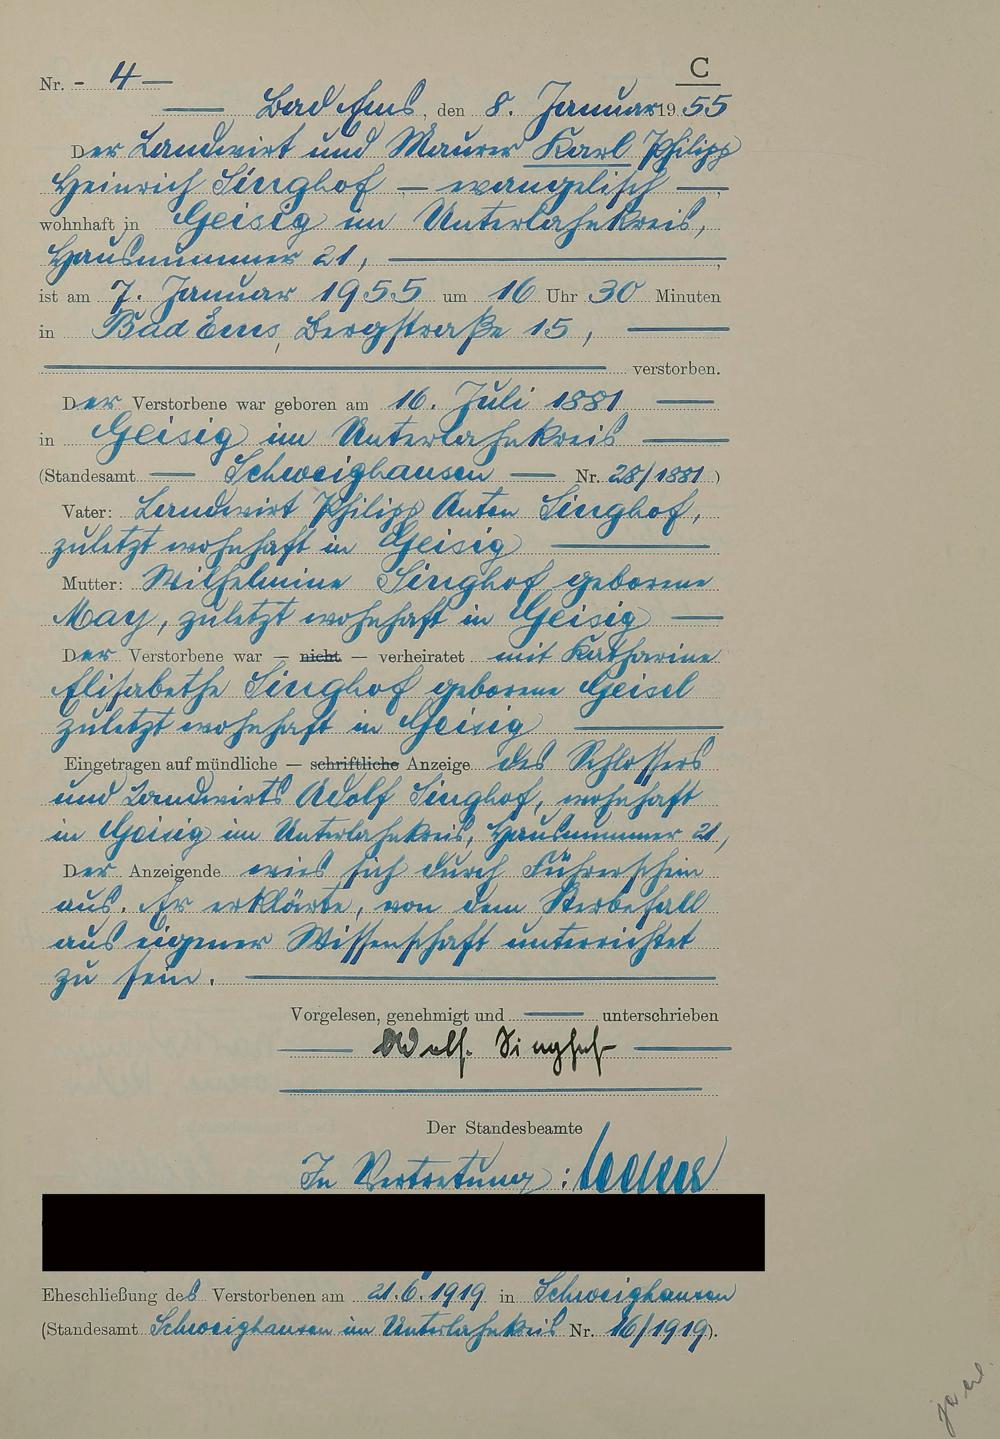 C
Nr. - 4 —
Bad Ems, den 8. Januar 1955
Der Landwirt und Maurer Karl Philipp
Heinrich Singhof — evangelisch —,
wohnhaft in Geisig im Unterlahnkreis,
Hausnummer 21,
ist am 7. Januar 1955 um 16 Uhr 30 Minuten
in Bad Ems, Bergstraße 15,
verstorben.
Der Verstorbene war geboren am 16. Juli 1881
in Geisig im Unterlahnkreis
(Standesamt — Schweighausen — Nr. 28/1881)
Vater: Landwirt Philipp Anton Singhof,
zuletzt wohnhaft in Geisig
Mutter: Wilhelmine Singhof geborene
May, zuletzt wohnhaft in Geisig
Der Verstorbene war — nicht — verheiratet mit Katharine
Elisabethe Singhof geborene Geisel
zuletzt wohnhaft in Geisig
Eingetragen auf mündliche — schriftliche Anzeige des Schlossers
und Landwirts Adolf Singhof, wohnhaft
in Geisig im Unterlahnkreis, Hausnummer 21,
Der Anzeigende wies sich durch Führerschein
aus. Er erklärte, von dem Sterbefall
aus eigener Wissenschaft unterrichtet
zu sein.
Vorgelesen, genehmigt und — unterschrieben
Adolf Singhof
Der Standesbeamte
In Vertretung:
Eheschließung des Verstorbenen am 21.6.1919 in Schweighausen
(Standesamt Schweighausen im Unterlahnkreis Nr. 16/1919).